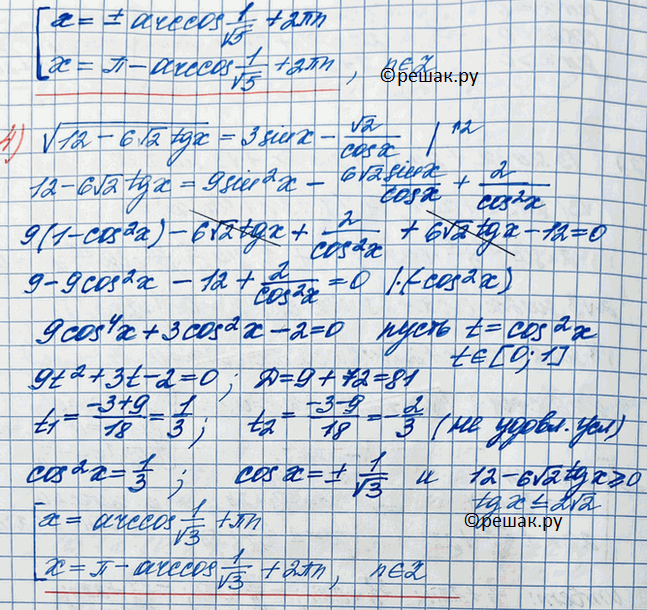 x = ± arccos 1/√5 + 2πn
x = π - arccos 1/√5 + 2πn, n∈Z
©решак.ру
4) √(12 - 6√2 tgx) = 3sinx - √2/cosx |↑2
12 - 6√2 tgx = 9sin²x - 6√2sinx/cosx + 2/cos²x
9(1-cos²x) - 6√2tgx + 2/cos²x + 6√2tgx - 12 = 0
9 - 9cos²x - 12 + 2/cos²x = 0 |·(-cos²x)
9cos⁴x + 3cos²x - 2 = 0 пусть t = cos²x
t∈[0;1]
9t² + 3t - 2 = 0; D = 9 + 72 = 81
t₁ = -3+9/18 = 1/3; t₂ = -3-9/18 = -2/3 (не удовл. усл)
cos²x = 1/3; cosx = ± 1/√3 и 12 - 6√2 tgx ≥ 0
tgx ≤ 2√2
©решак.ру
x = arccos 1/√3 + πn
x = π - arccos 1/√3 + 2πn, n∈Z